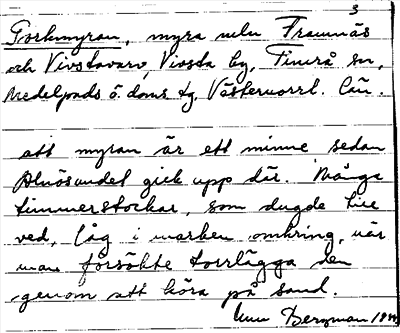 3
Torkmyran, myra mln Fräunäs
och Vivstavarv, Vivsta by, Timrå sn,
Medelpads ö. doms tg, Västernorrl. län.
att myran är ett minne sedan
Alnösundet gick upp där. Många
timmerstockar, som dugde till
ved, låg i marken omkring, när
man försökte torrlägga den
genom att köra på sand.
Bergman